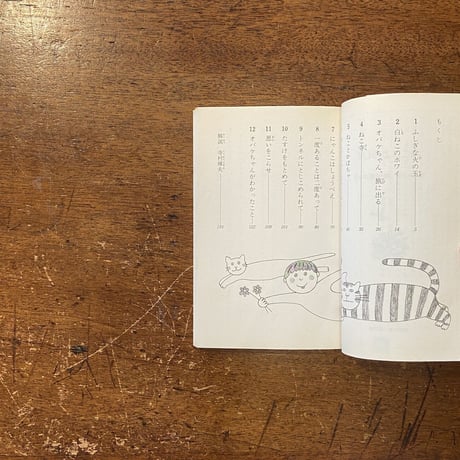 もくじ
1 ふしぎな火の玉
2 白ねこのホワイ
3 オバケちゃん、旅に出る
4 ねこ寺
5 ねことかぼちゃ
7 にゃんこはしょうべえ
8 一度あることは二度あって
9 トンネルにとじこめられて
10 たすけをもとめて
11 思いをこらせ
12 オバケちゃんがわかったこと
解説 寺村輝夫